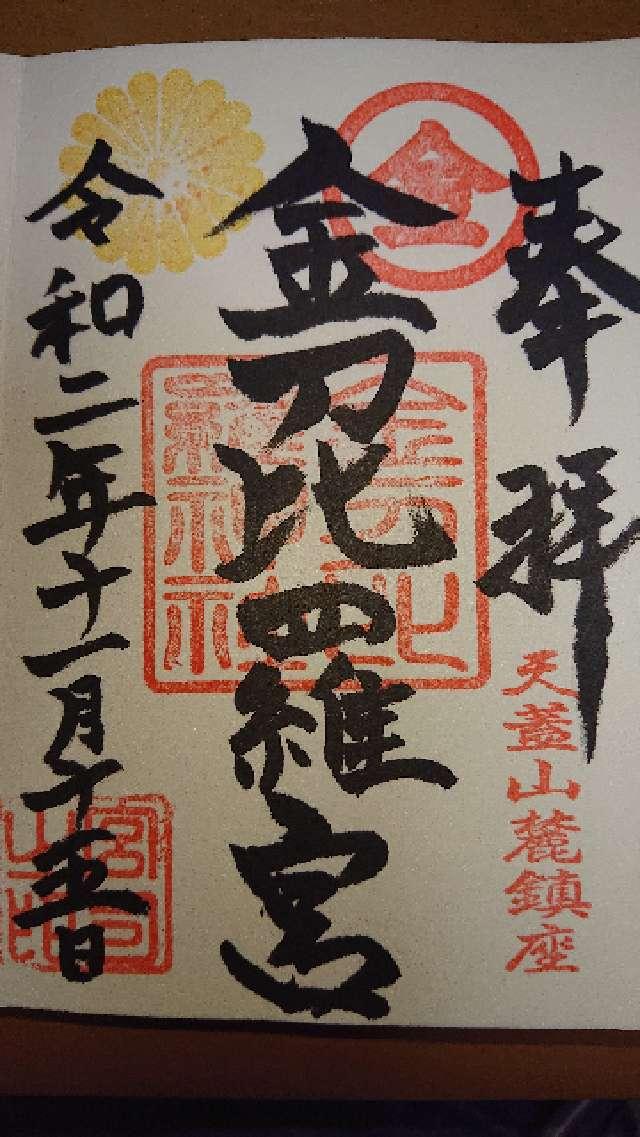 奉拝
天蓋山麓鎮座
金
金刀比羅宮
金刀比
羅神社
令和二年十一月十五日
宮司